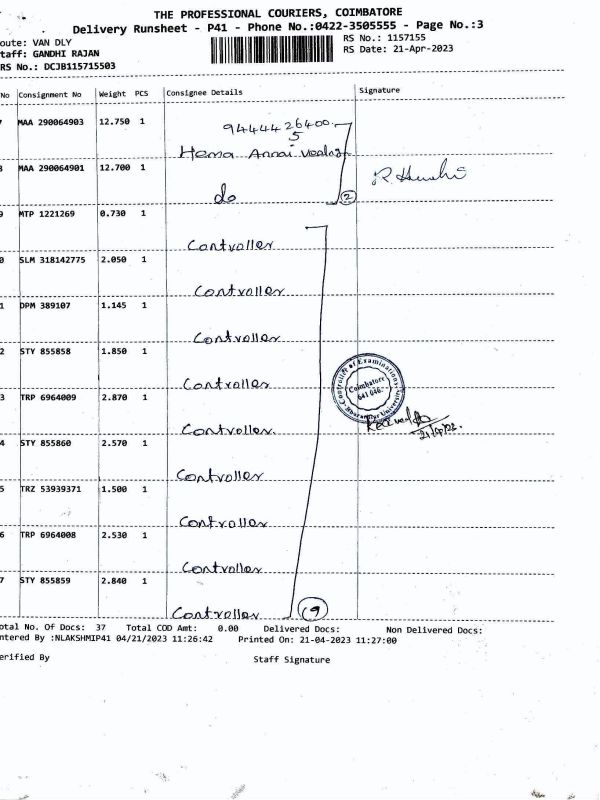 THE PROFESSIONAL COURIERS, COIMBATORE
Delivery Runsheet - P41 - Phone No.:0422-3505555 - Page No.:3
oute: VAN DLY
RS No.: 1157155
taff: GANDHI RAJAN
RS Date: 21-Apr-2023
RS No.: DCJB115715503
No Consignment No Weight PCS Consignee Details Signature
7 MAA 290064903 12.750 1
9444426400
5
Hema Annai
8 MAA 290064901 12.700 1
do 2
9 MTP 1221269 0.730 1
Controller
0 SLM 318142775 2.050 1
Controller
1 DPM 389107 1.145 1
Controller
2 STY 855858 1.850 1
Controller
3 TRP 6964009 2.870 1
Controller
4 STY 855860 2.570 1
Controller
5 TRZ 53939371 1.500 1
Controller
6 TRP 6964008 2.530 1
Controller
7 STY 855859 2.840 1
Controller 9
Coimbatore
641 046
otal No. Of Docs: 37 Total COD Amt: 0.00 Delivered Docs: Non Delivered Docs:
ntered By :NLAKSHMIP41 04/21/2023 11:26:42 Printed On: 21-04-2023 11:27:00
erified By Staff Signature